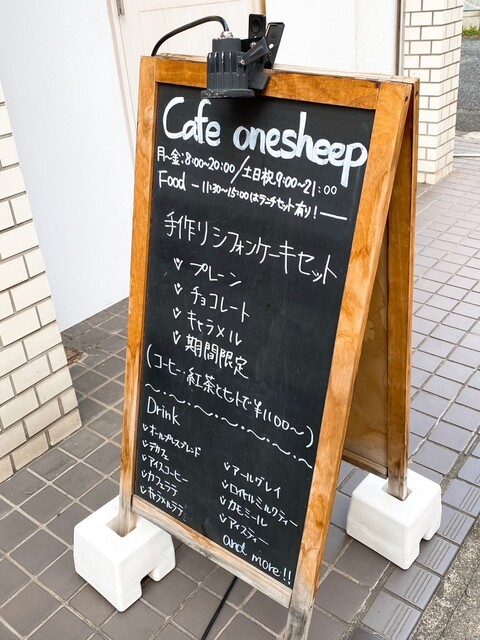 Cafe onesheep
月〜金:8:00~20:00/土日祝9:00~21:00
Food — 11:30~15:00はランチセット有り!—
手作りシフォンケーキセット
プレーン
チョコレート
キャラメル
期間限定
(コーヒー・紅茶とセットで¥1100〜)
Drink
オールプレスブレンド
デカフェ
アイスコーヒー
カフェラテ
キャラメルラテ
アールグレイ
ロイヤルミルクティー
カモミール
アイスティー
and more!!